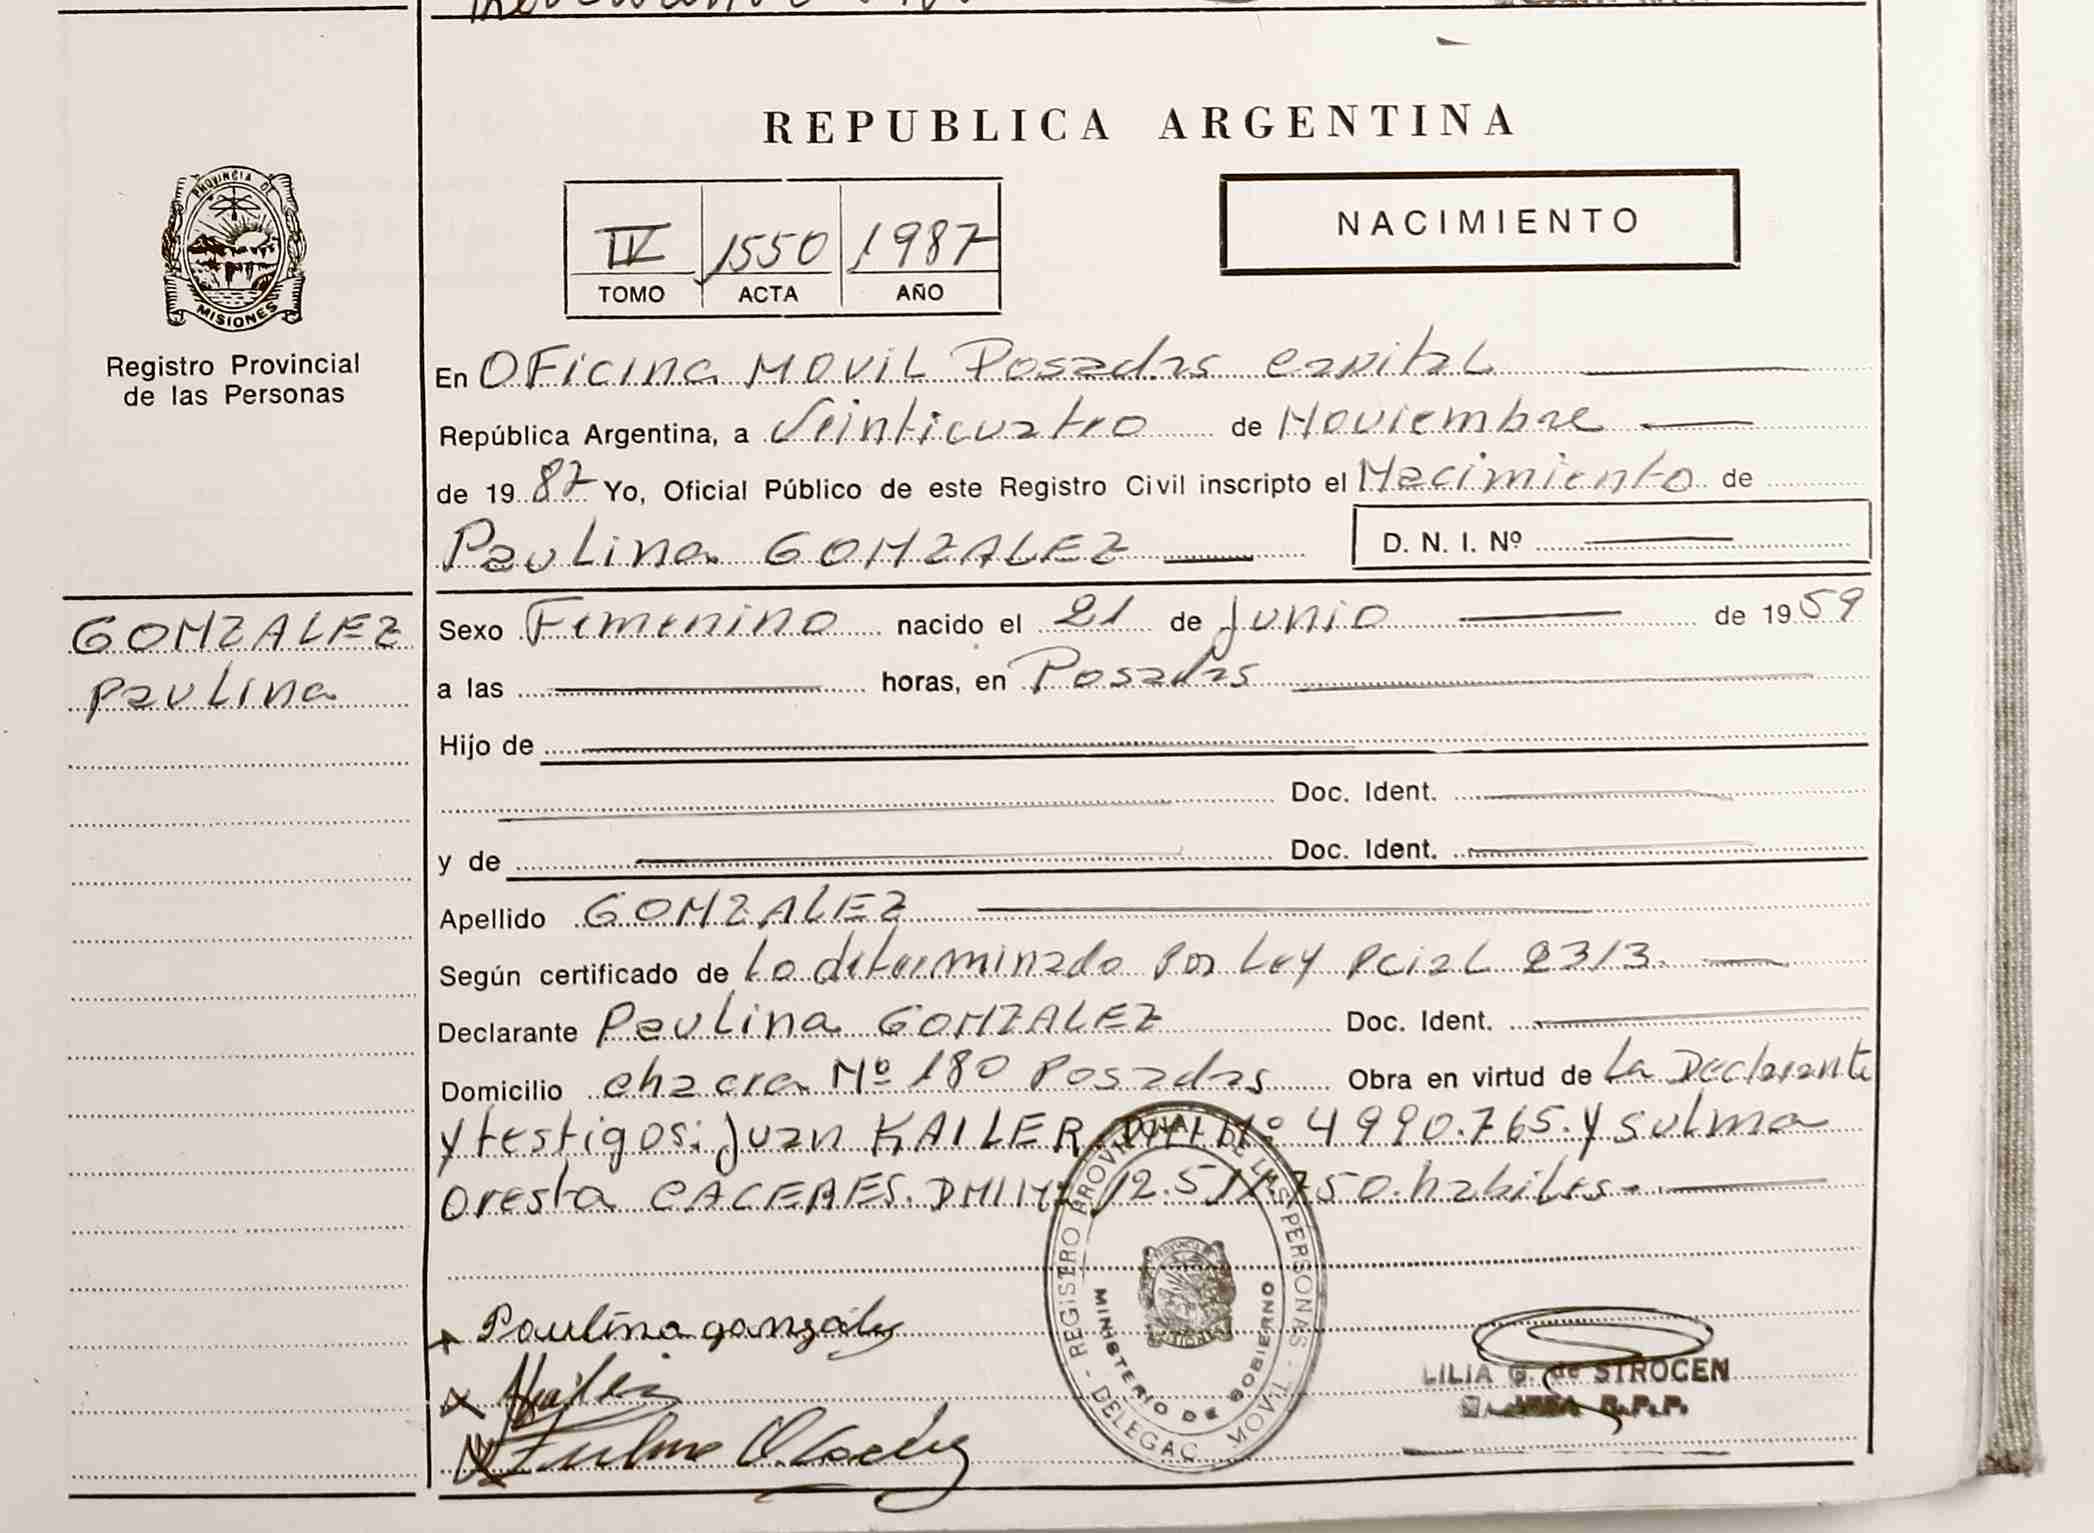 REPUBLICA ARGENTINA
PROVINCIA DE MISIONES
Registro Provincial
de las Personas
NACIMIENTO
IV 1550 1987
TOMO ACTA AÑO
En OFicina MOVIL Posadas capital
República Argentina, a Veinticuatro de Noviembre
de 19 87 Yo, Oficial Público de este Registro Civil inscripto el Nacimiento de
Paulina GONZALEZ D. N. I. Nº
GONZALEZ
Paulina
Sexo Femenino nacido el 21 de Junio de 19 59
a las horas, en Posadas
Hijo de
Doc. Ident.
y de Doc. Ident.
Apellido GONZALEZ
Según certificado de Lo determinado por Ley Pcial 2313.
Declarante Paulina GONZALEZ Doc. Ident.
Domicilio chacra Nº 180 Posadas Obra en virtud de La Declarante
y testigos: Juan KAILER. Nº 4990.765. y sulma
oresta CACERES. DNI Nº 12.5 750. habiles.
Paulina gonzález
LILIA G. de STROCEN
R.P.P.
REGISTRO PROVINCIAL DE LAS PERSONAS - DELEGAC. MOVIL -
MINISTERIO DE GOBIERNO